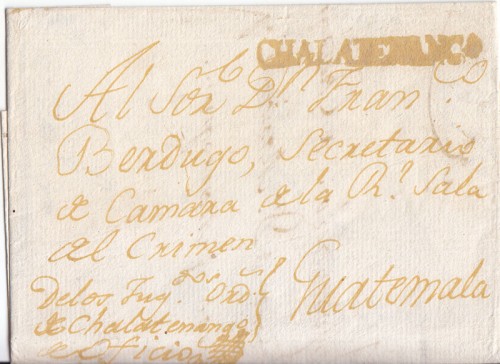 CHALATENANGO
Al Sor. Dn. Franco.
Berdugo, Secretario
de Camara de la Rl. Sala
del Crimen
Guatemala
De los Juzgdos. Ordos.
de Chalatenango
de Oficio